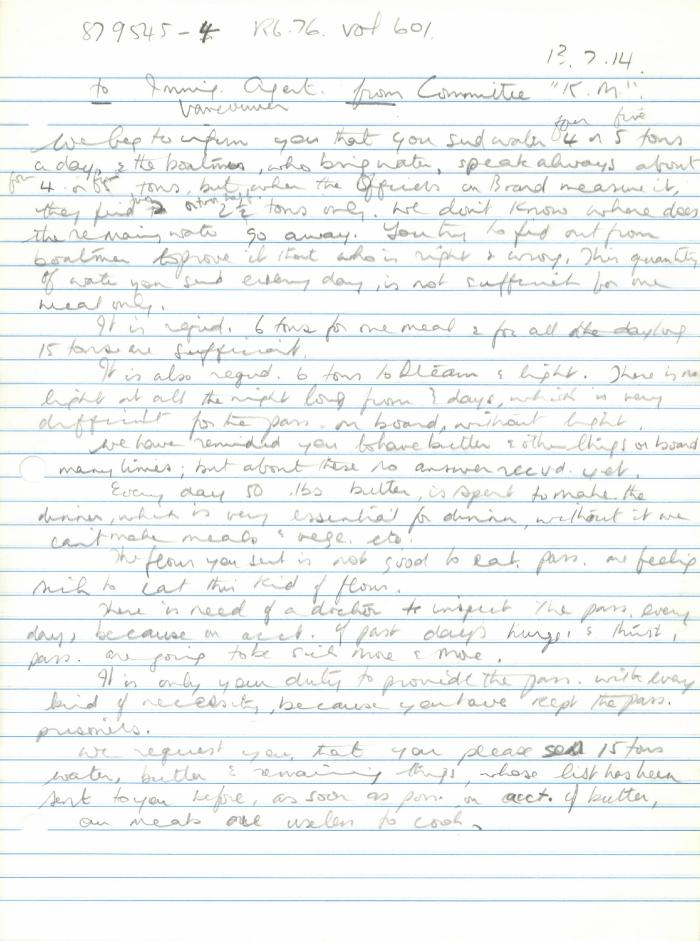 879545-4 RG.76. vol 601.
13.7.14.
to Immig. Agent. from Committee "K.M".
Vancouver
four five
We beg to inform you that you send water 4 or 5 tons
a day, & the boatmen, who bring water, speak always about
four
4 or 5 tons, but, when the Officers on Board measure it,
they find 2 or 2½ tons only. We don't know where does
the remaining water go away. You try to find out from
boatmen to prove it that who is right & wrong. This quantity
of water you send every day, is not sufficient for one
meal only.
It is reqird. 6 tons for one meal & for all the day long
15 tons are sufficient.
It is also reqrd. 6 tons to steam & light. There is no
light at all the night long from 3 days, which is very
difficult for the pass. on board, without light.
We have reminded you to have butter & other things on board
many times; but about these no answer recvd. yet.
Every day 50 lbs butter, is spent to make the
dinner, which is very essential for dinner, without it we
can't make meals & vege. etc.
The flour you sent is not good to eat. pass. are feeling
sick to eat this kind of flour.
There is need of a doctor to inspect the pass. every
day, because on acct. of past days hunger & thirst,
pass. are going to be sick more & more.
It is only your duty to provide the pass. with every
kind of necessity, because you have kept the pass.
prisoners.
We request you, that you please send 15 tons
water, butter & remaining things, whose list has been
sent to you before, as soon as poss. on acct. of butter,
our meals are useless to cook.